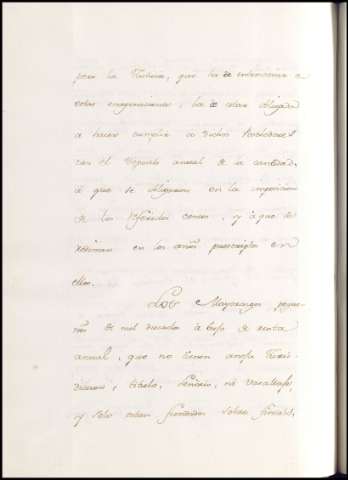 por la Justicia, que ha de entenderse a
estas enagenaciones, ha de estar obligado
a hacer cumplir a dichos Posehedores
con el deposito annual de la cantidad,
á que se obligaron en la imposicion
de los referidos censos, y á que los
redimian en los años prescriptos en
ellos.
Los Mayorazgos peque-
ños de mil ducados á bajo de renta
annual, que no tienen anexa Juris-
diccion, titulo, Señorio, ni Vasallage,
y solo estan fundados sobre